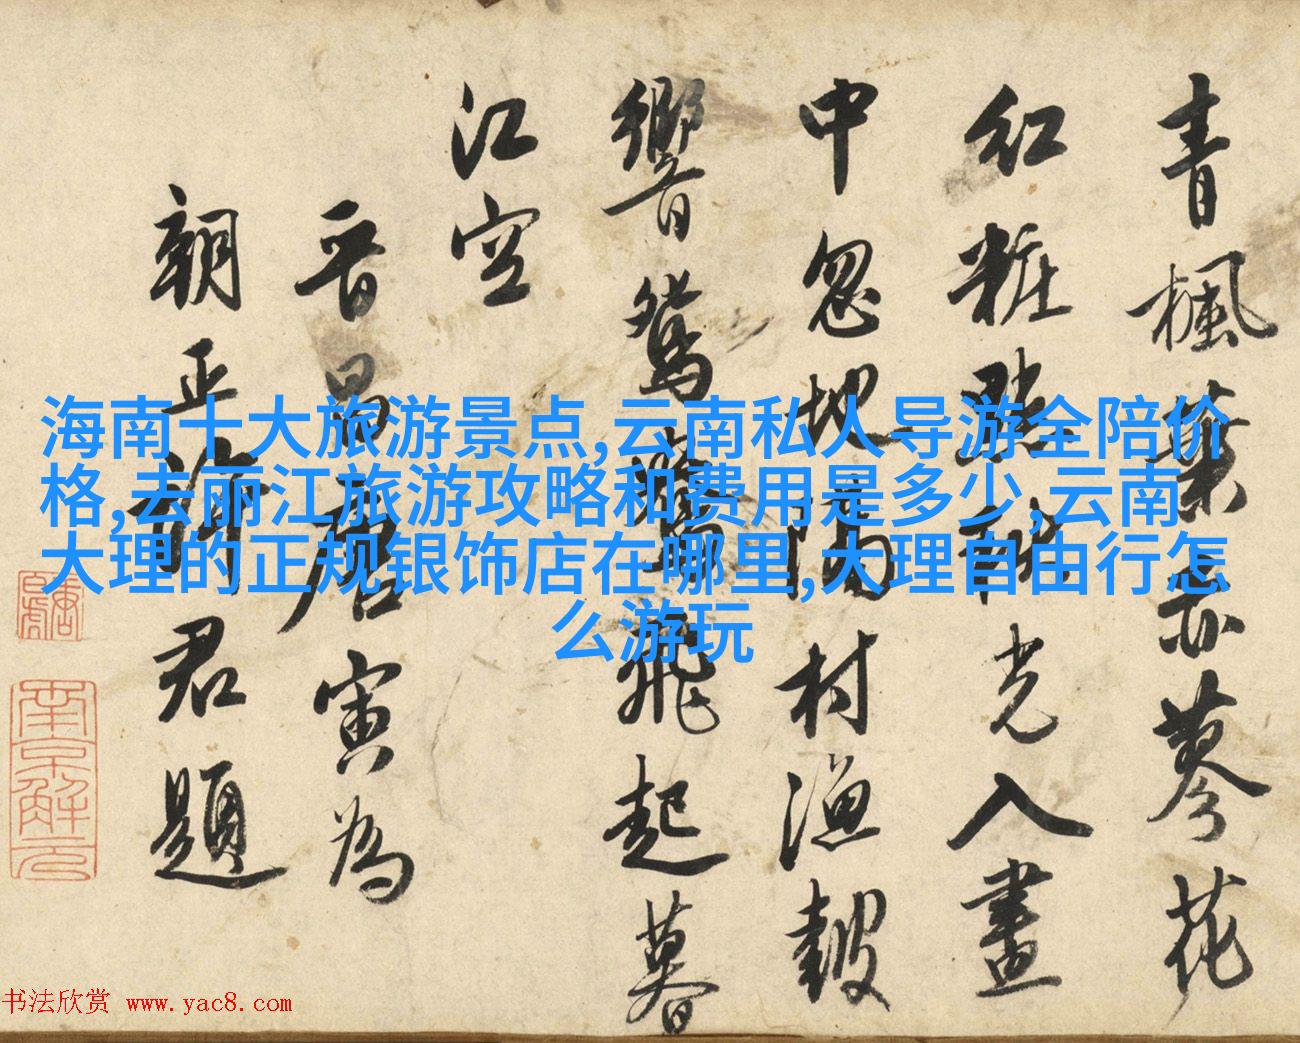 青楓葉赤蓼花
紅粧點秋光入畫
中忽地隔村漁皷
響鴛飛起暮
江空
晉昌唐寅為
朝正詞君題
南京解元
海南十大旅游景点,云南私人导游全陪价
格,去丽江旅游攻略和费用是多少,云南
大理的正规银饰店在哪里,大理自由行怎
么游玩
书法欣赏 www.yac8.com